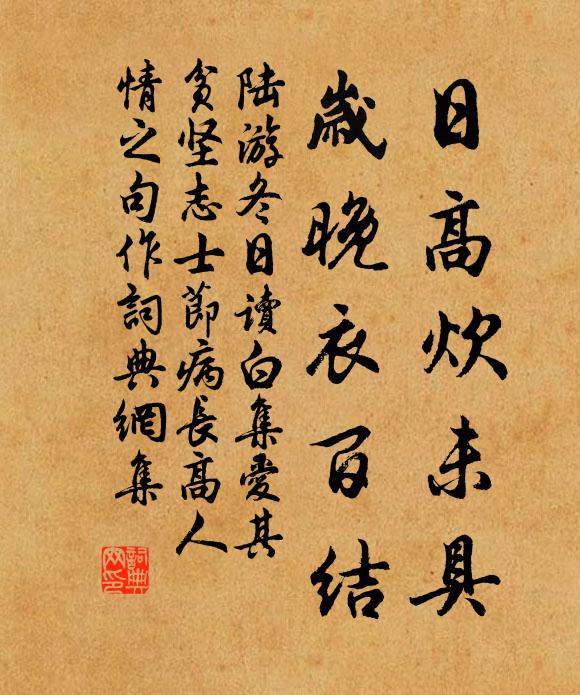 日高炊未具
歲晚衣百结
陆游冬日读白集爱其
贫坚志士節病長高人
情之句作詞典網集
詞典網印